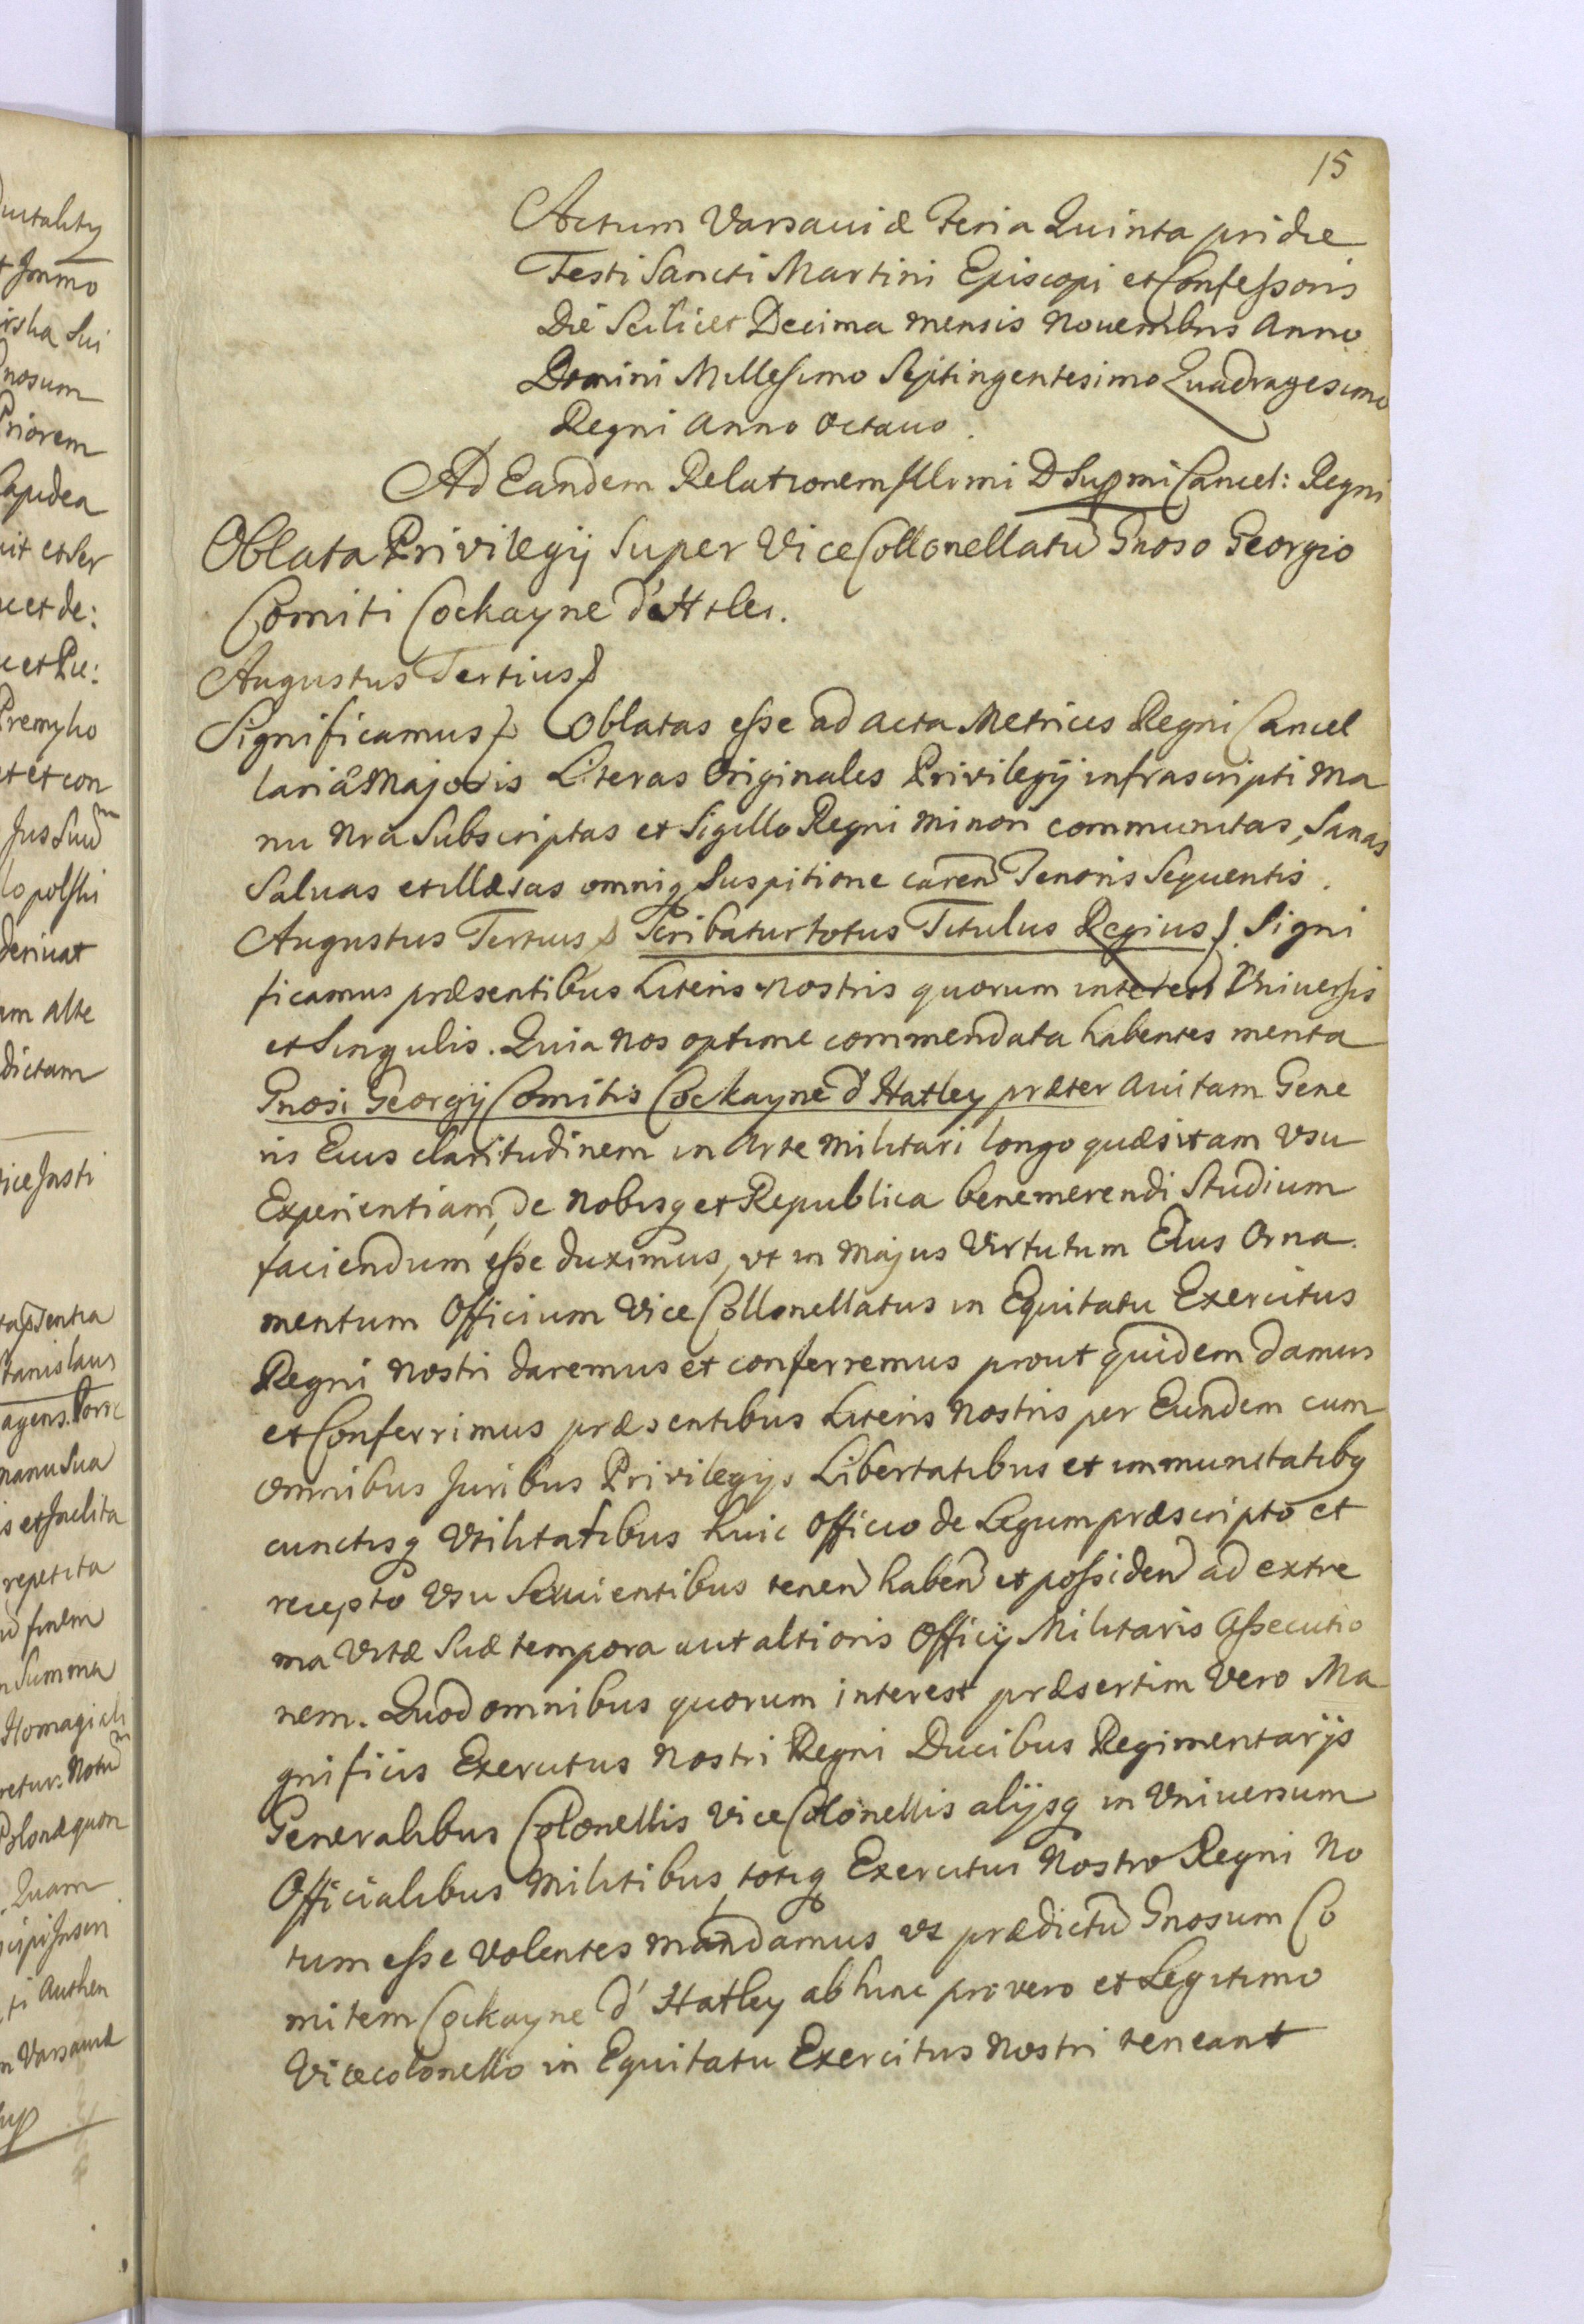 15
Actum Varsaviæ Feria Quinta pridie
Festi Sancti Martini Episcopi et Confessoris
Die Scilicet Decima mensis Novembris Anno
Domini Millesimo Septingentesimo Quadragesimo
Regni Anno Octavo.
Ad Eandem Relationem Illrmi D Supmi Cancel: Regni
Oblata Privilegij Super Vice Collonellatu Gnoso Georgio
Comiti Cockayne d'Attles.
Augustus Tertius
Significamus Oblatas esse ad acta Metrices Regni Cancel
lariæ Majoris Literas Originales Privilegij infrascripti ma
nu nra Subscriptas et Sigillo Regni minori communitas, Sanas
Salvas et illæsas omniq Suspitione caren Tenoris Sequentis.
Augustus Tertius Scribatur totus Titulus Regius Signi
ficamus præsentibus Literis nostris quorum interest Universis
et Singulis. Quia nos optime commendata habentes merita
Gnosi Georgij Comitis Cockayne d'Hatley præter avitam Gene
ris Eius claritudinem in Arte militari longo quæsitam Vsu
Experientiam, de nobisq et Republica benemerendi Studium
faciendum esse duximus, vt in majus Virtutum Eius Orna
mentum Officium Vice Collonellatus in Equitatu Exercitus
Regni nostri daremus et conferremus prout quidem damus
et Conferrimus præsentibus Literis nostris per Eundem cum
omnibus Juribus Privilegijs Libertatibus et immunitatibq
cunctisq Vtilitatibus huic Officio de Legum præscripto et
recepto Vsu Servientibus tenen haben et possiden ad extre
ma Vitæ Suæ tempora aut altioris Officij Militaris Assecutio
nem. Quod omnibus quorum interest præsertim Vero Ma
gnificis Exercitus nostri Regni Ducibus Regimentarijs
Generalibus Colonellis Vice Colonellis alijsq in Vniversum
Officialibus Militibus, totiq Exercitui Nostro Regni No
tum esse Volentes mandamus vt prædictu Gnosum Co
mitem Cockayne d' Hatley ab hinc pro vero et Legitimo
Vicecolonello in Equitatu Exercitus Nostri teneant